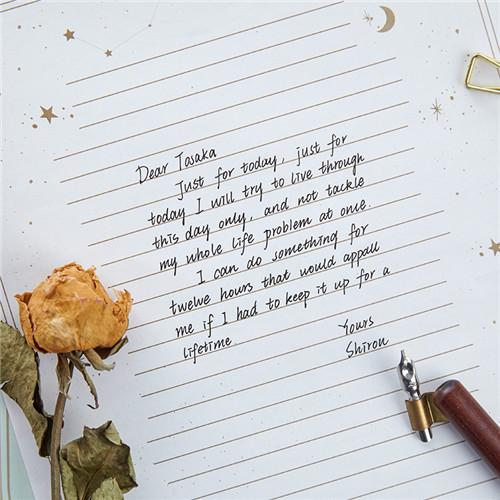 Dear Tosaka
Just for today, just for
today I will try to live through
this day only, and not tackle
my whole life problem at one.
I can do something for
twelwe hours that would appall
me if I had to keep it up for a
lifetime
Yours
Shirou